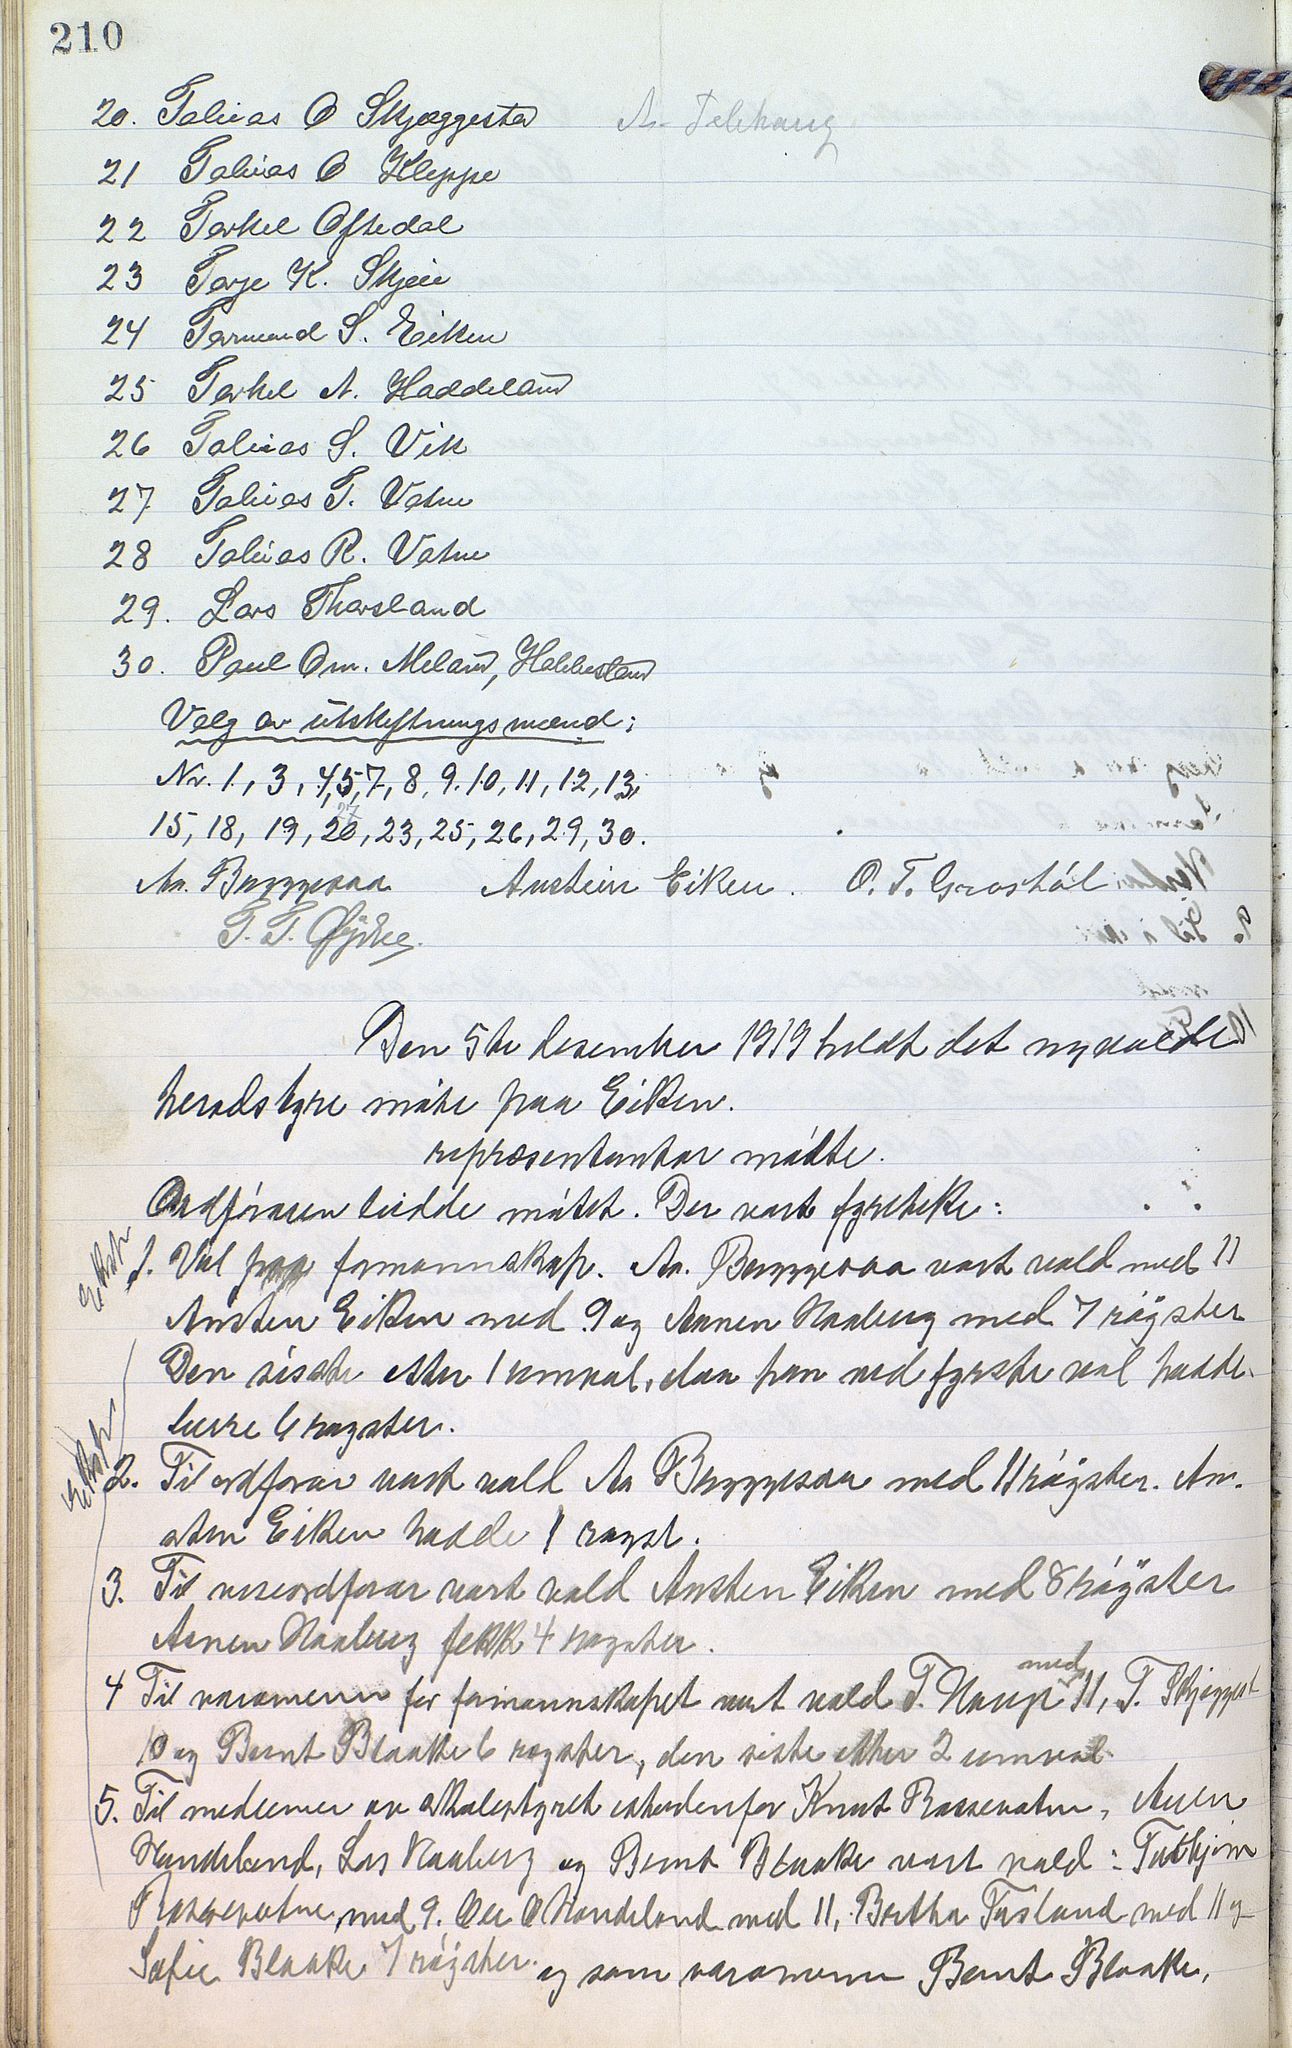 210
20. Tobias O Skjeggestad A. Telhaug
21 Tobias O Kleppe
22 Torkel Oftedal
23 Terje K. Skjeie
24 Tormund S. Eiken
25 Torkel A. Haddeland
26 Tobias S. Vik
27 Tobias T. Vatne
28 Tobias R. Vatne
29. Lars Thorsland
30. Paul Om. Meland, Hobbesland
Valg av utskiftningsmænd:
Nr. 1, 3, 4, 5, 7, 8, 9, 10, 11, 12, 13,
27
15, 18, 19, 20, 23, 25, 26, 29, 30.
Aa. Bryggesaa Anstein Eiken. O. T. Groshól
T. T. Øydne.
Den 5te desember 1919 heldt det nyvalde
heradstyre móte paa Eiken.
representantar mótte.
Ordføraren leidde mótet. Der vart fyreteke:
Utskr.
1. Val paa formannskap. Aa. Bryggesaa vart vald med 11
Ansten Eiken med 9 og Aanen Haaberg med 7 róyster
Den siste etter 1 umval, daa han ved fyrste val hadde
berre 6 røyster.
Utskr.
2. Til ordførar vart vald Aa Bryggesaa med 11 róyster. An-
sten Eiken hadde 1 røyst.
3. Til viseordførar vart vald Ansten Eiken med 8 róyster
Aanen Haaberg fekk 4 røyster.
med
4 Til varamenn for formannskapet vart vald T. Hauge 11, T. Skjeggest
10 og Bernt Blaake 6 røyster, den siste etter 2 umval
5. Til medlemer av skulestyret istadenfor Knut Rossevatn, Aanen
Handeland, Lars Haaberg og Bernt Blaake vart vald: Torbjørn
Rossevatne med 9. Ole O Handeland med 11, Bertha Frøsland med 11 og
Sofie Blaake 7 róyster. og som varamenn Bernt Blaake,